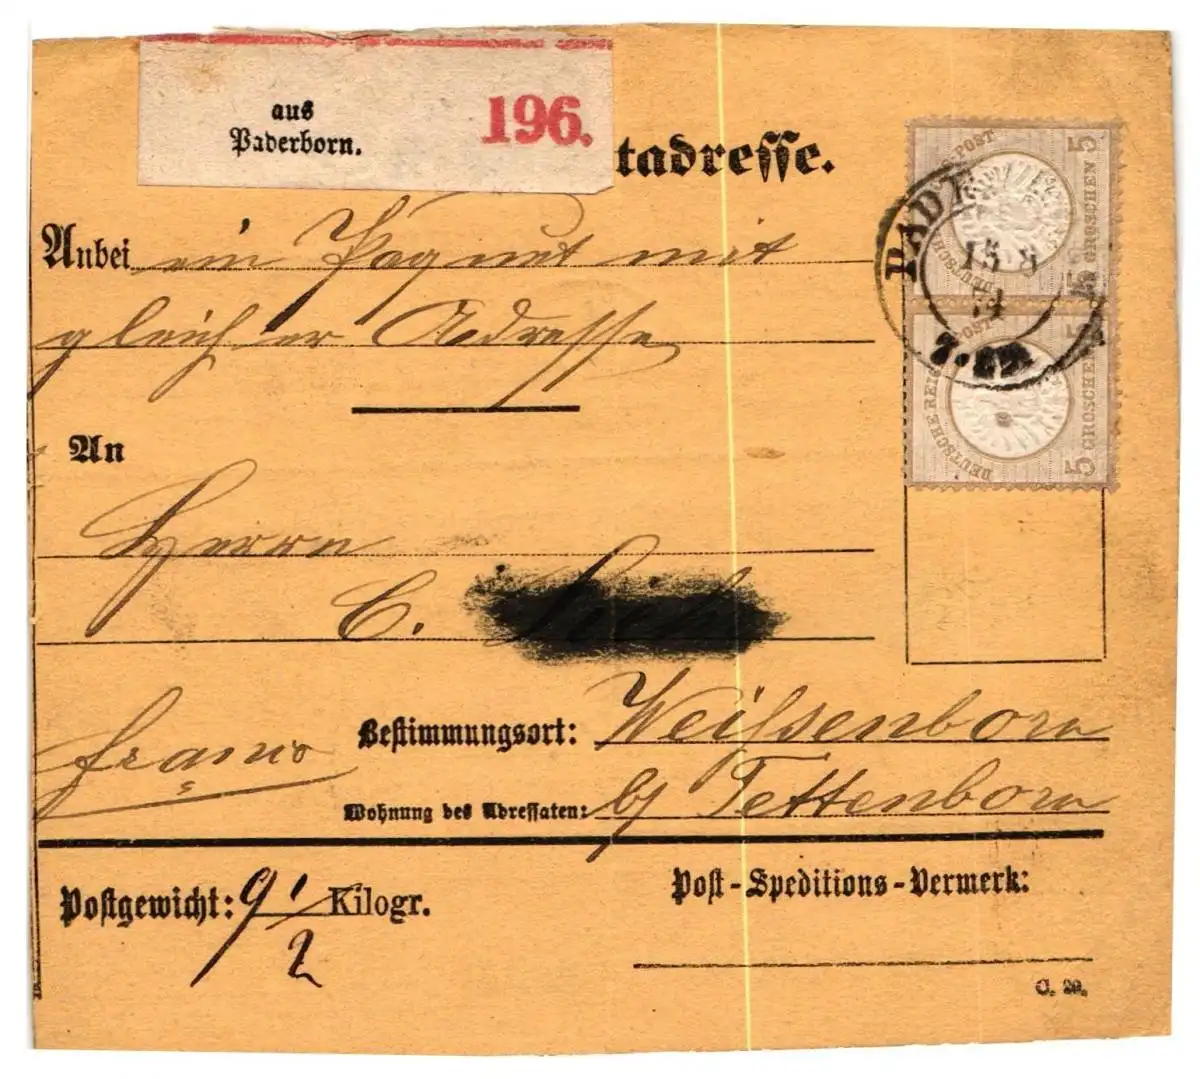 aus
Paderborn.
196.
tadresse.
Anbei ein Paquet mit
gleicher Adresse
An
Herrn
C.
franco
Bestimmungsort: Weissenborn
Wohnung des Adressaten: b/ Tettenborn
Postgewicht: 9 1/2 Kilogr.
Post-Speditions-Vermerk:
C. 20.
5 GROSCHEN 5
DEUTSCHE REICHS POST
PAD
15 8
74
5 GROSCHEN 5
DEUTSCHE REICHS POST